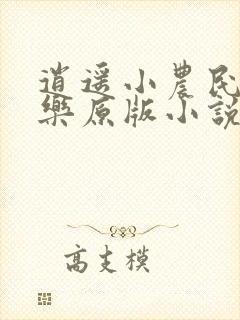 逍遥小農民
樂原版小說
高支模